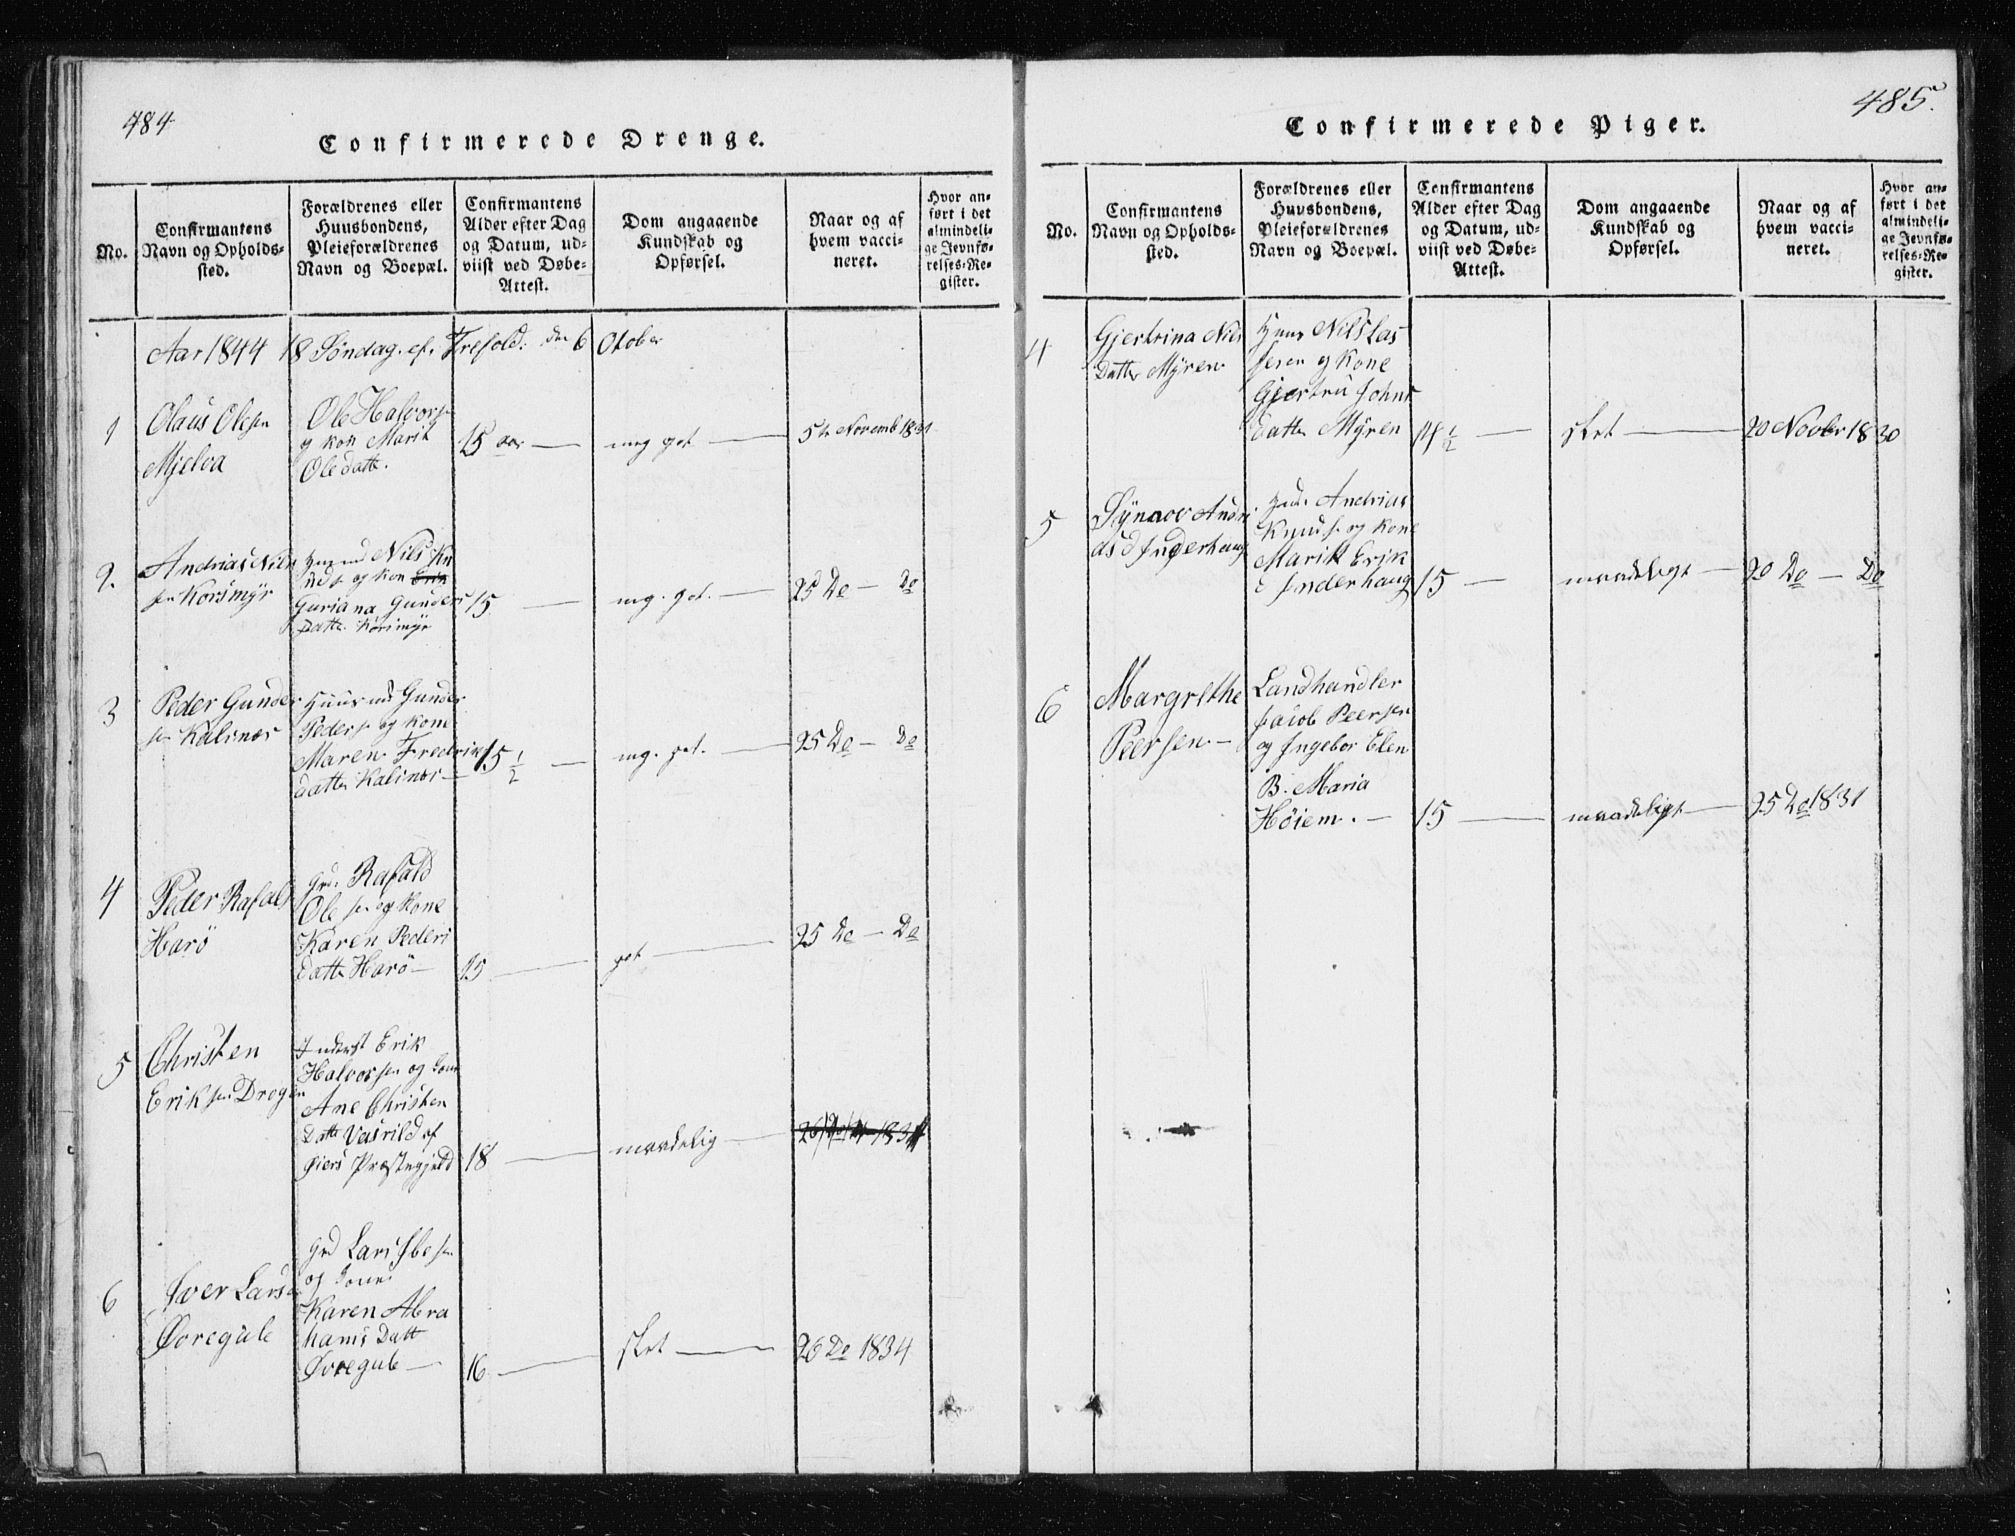 484
Confirmerede Drenge.
No.
Confirmantens
Navn og Opholds-
sted.
Forældrenes eller
Huusbondens,
Pleieforældrenes
Navn og Boepæl.
Confirmantens
Alder efter Dag
og Datum, ud-
viist ved Døbe-
Attest.
Dom angaaende
Kundskab og
Opførsel.
Naar og af
hvem vacci-
neret.
Hvor an-
ført i det
almindeli-
ge Jevnfø-
relses-Re-
gister.
Aar 1844 18 Søndag. ef. Trefold: den 6 Otober
1
Olaus Olesen
Mjelva
Ole Halvorse
og kon Marit
Ole datte.
15 aar
meg got
5te Novemb 1831
2.
Andrias Niels
sen Korsmyr
Huusmd Nils Kn
uds. og kon Erik
Guriana Gunders
Datte. Korsmyr
15
mg. got.
25 Do — Do
3
Peder Gunder
sen Kalsnes
Huusmd Gunder
Peders. og kone
Maren Fredriks
datte Kalsnes
15 1/2
mg. got.
25 Do — Do
4
Peder Rafals
Harö
Grd. Rafald
Ole sen og Kone
Karen Peders
datte Harö
15
got
25 Do — Do
5
Christen
Eriksen Dregen
Inderst Erik
Halvorsen og Kone
Ane Christen
Datte Vasrild af
Øiers Præstegjeld
18
maadelig
6
Iver Larsen
Øvregule
Grd Lars Ibesen
og Kone
Karen Abra
hams Datt
Øvregule
16
slet
26 Do 1834
485.
Confirmerede Piger.
No.
Confirmantens
Navn og Opholds-
sted.
Forældrenes eller
Huusbondens,
Pleieforældrenes
Navn og Boepæl.
Confirmantens
Alder efter Dag
og Datum, ud-
viist ved Døbe-
Attest.
Dom angaaende
Kundskab og
Opførsel.
Naar og af
hvem vacci-
neret.
Hvor an-
ført i det
almindeli-
ge Jevnfø-
relses-Re-
gister.
4
Gjertrina Nils
Datter Myren
Huus Nils Las
sesen og Kone
Gjertru Johns
datte Myren
14 1/2
slet
20 Novbr 1830
5
Synnov Andri
as d Inderhaug
Huus. Andrias
Knuds. og Kone
Marit Erik
d Inderhaug
15
maadeligt
20 Do — Do
6
Margrethe
Peersen
Landhandler
Jacob Peersen
og Ingebor Elen
B. Maria
Höiem.
15
maadeligt
25 Do 1831